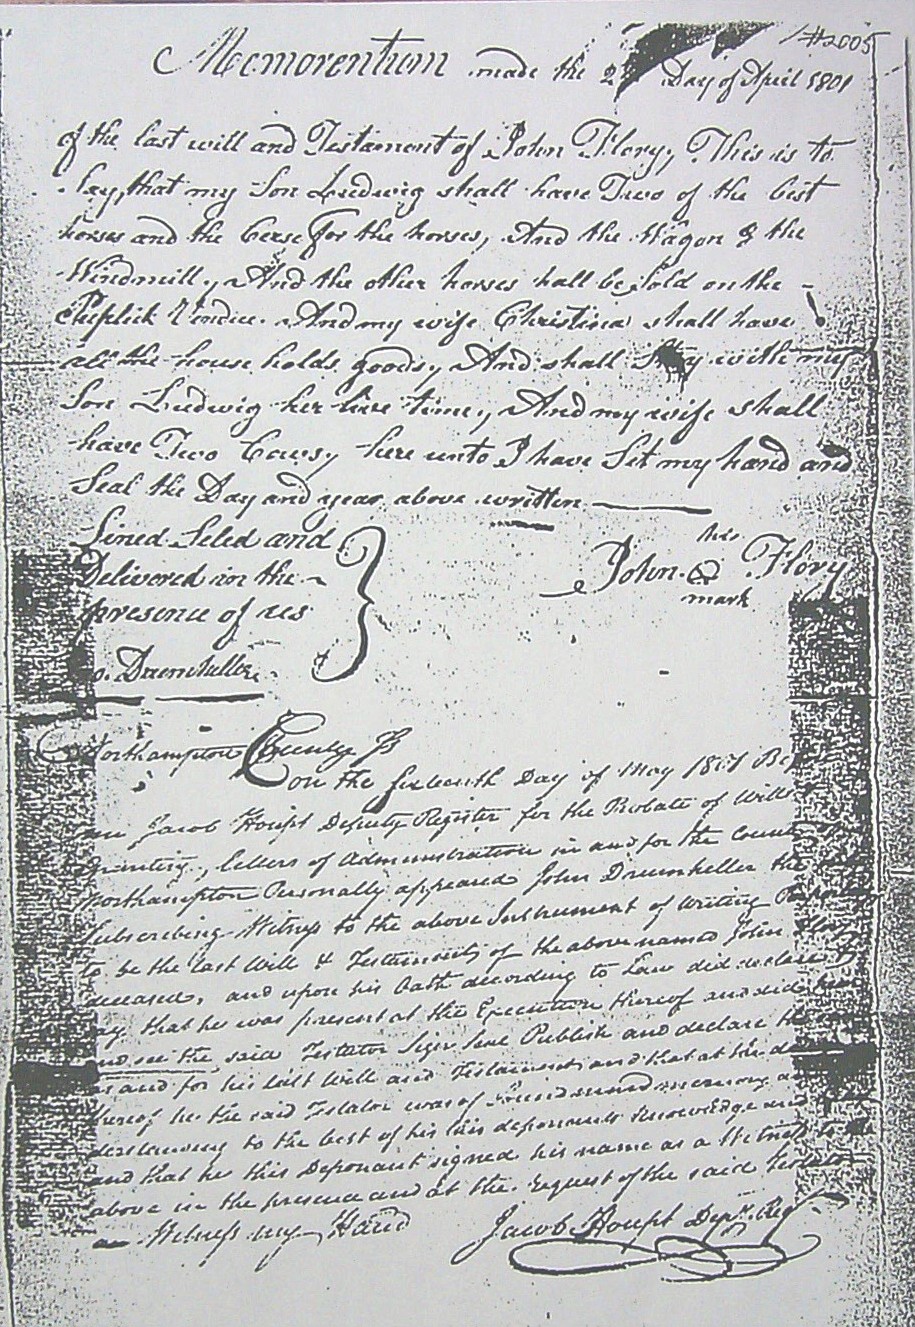 #2005
Memorentum made the 2 Day of April 1801
of the last will and Testament of John Flory, This is to
say, that my Son Ludwig shall have Two of the best
horses and the Gerse for the horses, And the Wagon & the
Windmill, And the other horses shall be Sold on the
Puplick Vendue. And my wife Christina shall have
all the house holds goods, And shall Stay with my
Son Ludwig her live time, And my wife shall
have Two Cows, here unto I have Set my hand and
Seal the Day and year above written
Sined Seled and
Delivered in the
presence of us
his
John Flory
mark
Jo. Drumheller
Northampton County Ss
on the sixteenth Day of May 1801 Be
Jacob Houpt Deputy Register for the Probate of Wills
Granting letters of Administration in and for the County
Northampton Personally appeared John Drumheller the
Subscribing Witness to the above Instrument of Writing
to be the last Will & Testament of the above named John
deceased, and upon his Oath according to Law did declare
say that he was present at the Execution thereof and did
and see the said Testator Sign Seal Publish and declare
as and for his last Will and Testament and that at the
thereof he the said Testator was of Sound mind memory
derstanding to the best of his this deponants Knowledge and
and that he this Deponant signed his name as a Witness
above in the presence and at the request of the said Testator
Witness my Hand
Jacob Houpt Depy. Reg